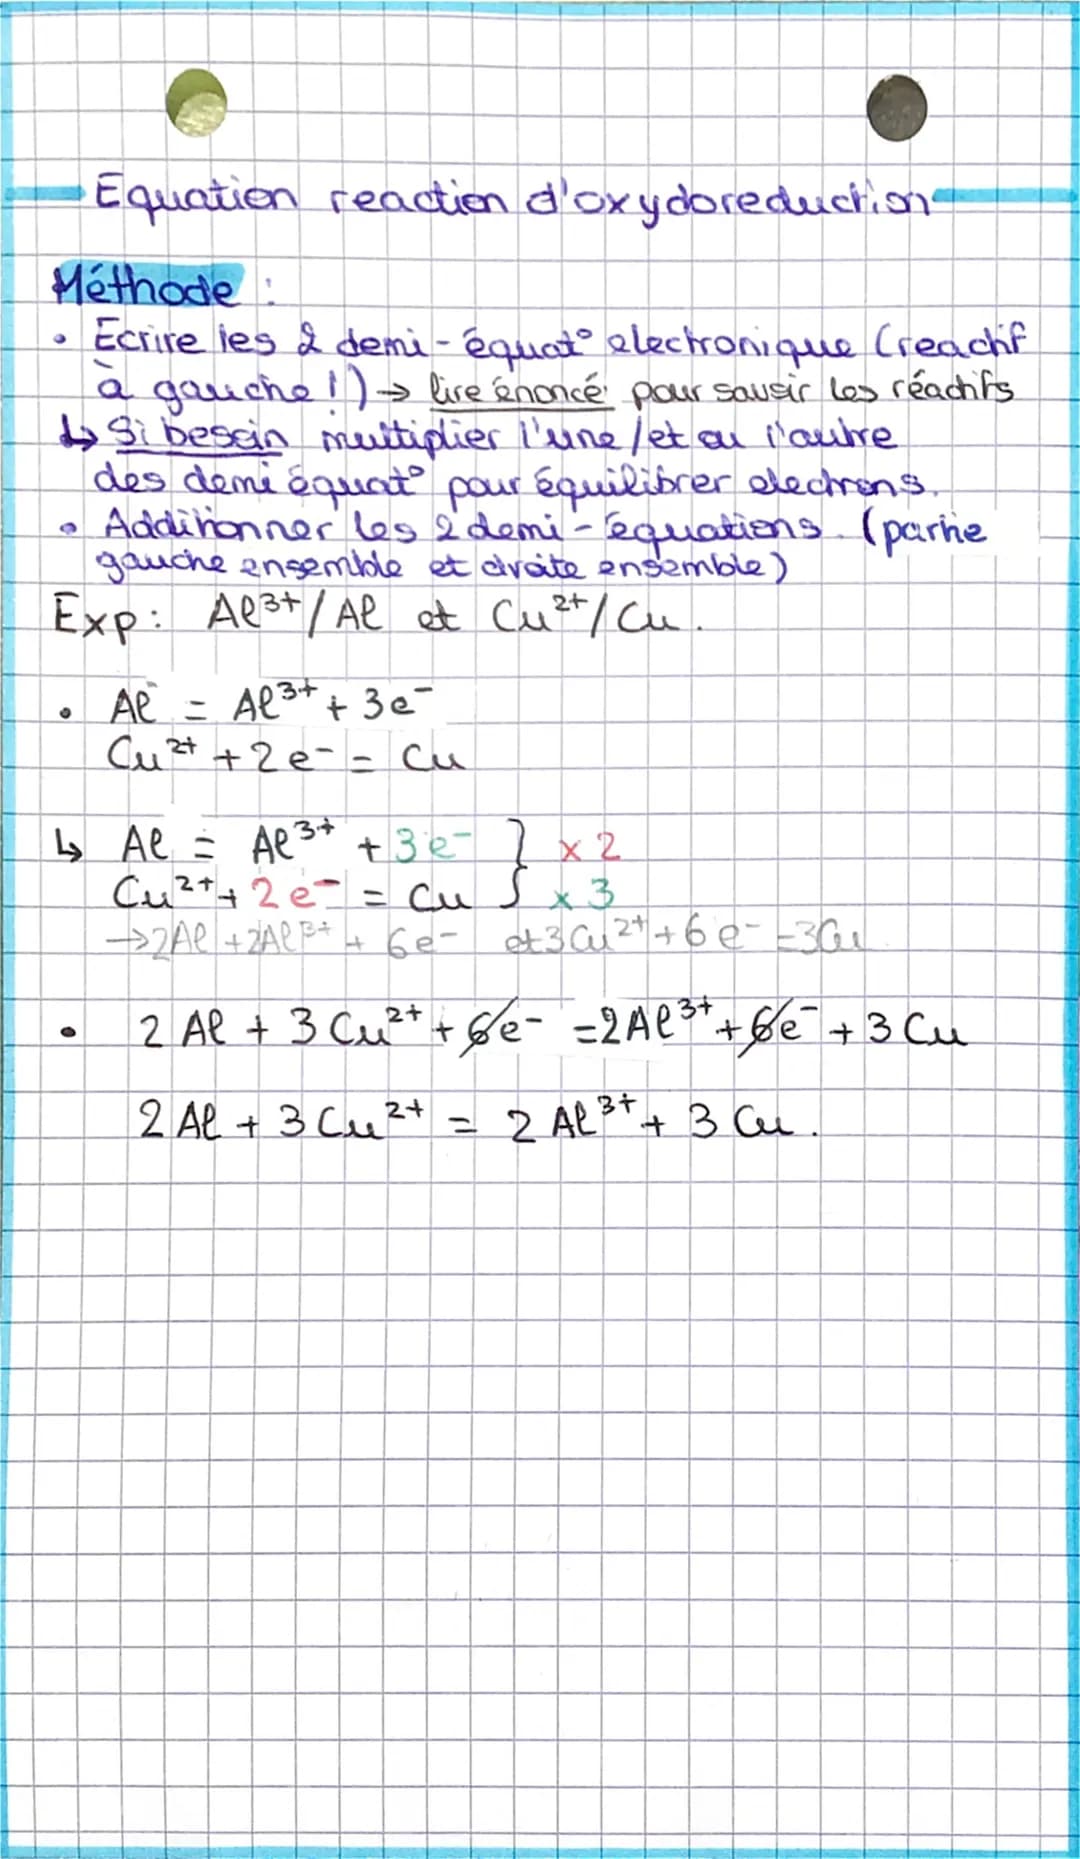 Equation reaction d'oxydoreduction
Méthode :
• Ecrire les 2 demi-équat° electronique (reactif
à gauche !) → lire énoncé pour savoir les réactifs
↳ Si besoin multiplier l'une /et ou l'autre
des demi équat° pour équilibrer electrons.
• Additionner les 2 demi-équations. (partie
gauche ensemble et droite ensemble)
Exp: Al³⁺/Al et Cu²⁺/Cu.
• Al = Al³⁺ + 3e⁻
Cu²⁺ + 2e⁻ = Cu
↳ Al = Al³⁺ + 3e⁻ } x 2
Cu²⁺ + 2e⁻ = Cu } x 3
→ 2Al + 2Al³⁺ + 6e⁻ et 3Cu²⁺ + 6e⁻ = 3Cu
• 2 Al + 3 Cu²⁺ + 6e⁻ = 2Al³⁺ + 6e⁻ + 3 Cu
2 Al + 3 Cu²⁺ = 2 Al³⁺ + 3 Cu.